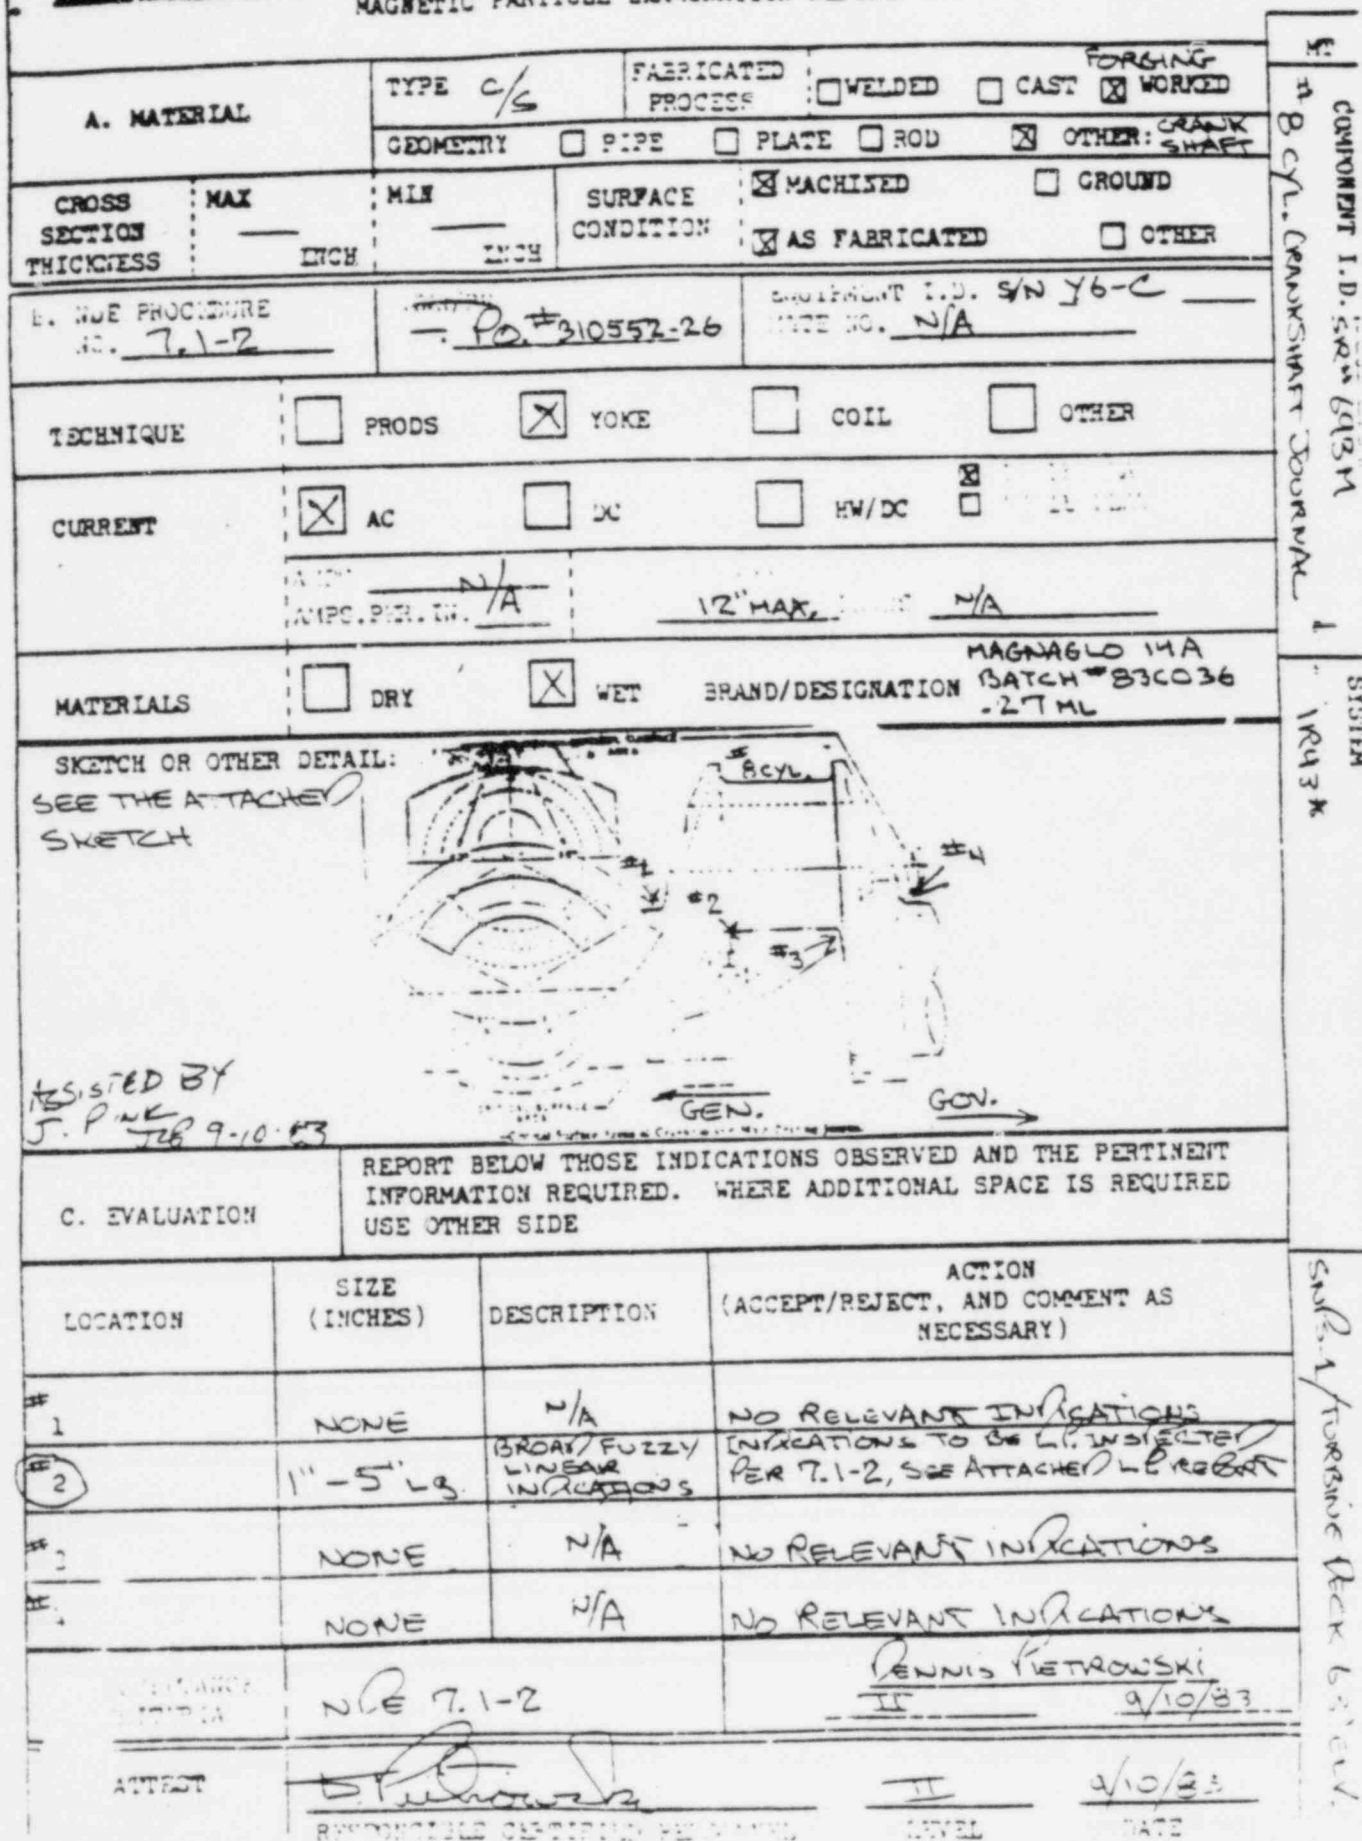 MAGNETIC PARTICLE
A. MATERIAL
TYPE C/S
FABRICATED PROCESS
WELDED
CAST
FORGING
WORKED
GEOMETRY
PIPE
PLATE
ROD
OTHER: CRANK SHAFT
CROSS SECTION THICKNESS
MAX — INCH
MIN — INCH
SURFACE CONDITION
MACHINED
GROUND
AS FABRICATED
OTHER
B. NDE PROCEDURE
NO. 7.1-2
P.O. #310552-26
EQUIPMENT I.D. S/N Y6-C
NO. N/A
TECHNIQUE
PRODS
YOKE
COIL
OTHER
CURRENT
AC
DC
HW/DC
N/A
AMPS. PER. IN.
12" MAX.
N/A
MATERIALS
DRY
WET
BRAND/DESIGNATION
MAGNAGLO 14A
BATCH #83C036
.27 ML
SKETCH OR OTHER DETAIL:
SEE THE ATTACHED
SKETCH
#8 CYL.
#1
#2
#3
#4
GEN.
GOV.
ASSISTED BY
J. PINK
9-10-83
C. EVALUATION
REPORT BELOW THOSE INDICATIONS OBSERVED AND THE PERTINENT
INFORMATION REQUIRED. WHERE ADDITIONAL SPACE IS REQUIRED
USE OTHER SIDE
LOCATION
SIZE
(INCHES)
DESCRIPTION
ACTION
(ACCEPT/REJECT, AND COMMENT AS
NECESSARY)
#1 NONE N/A NO RELEVANT INDICATIONS
#2 1" - 5" Lg. BROAD/FUZZY LINEAR INDICATIONS INDICATIONS TO BE L.P. INSPECTED PER 7.1-2, SEE ATTACHED LP REPORT
# NONE N/A NO RELEVANT INDICATIONS
# NONE N/A NO RELEVANT INDICATIONS
NDE 7.1-2
DENNIS PIETROWSKI
II 9/10/83
ATTEST
D. Pietrowski
II
9/10/83
RESPONSIBLE CERTIFIED PERSONNEL
LEVEL
DATE
MT
COMPONENT I.D.
#8 CYL. CRANKSHAFT JOURNAL
SYSTEM
1R43*
SNPS-1/TURBINE DECK 63' ELV.